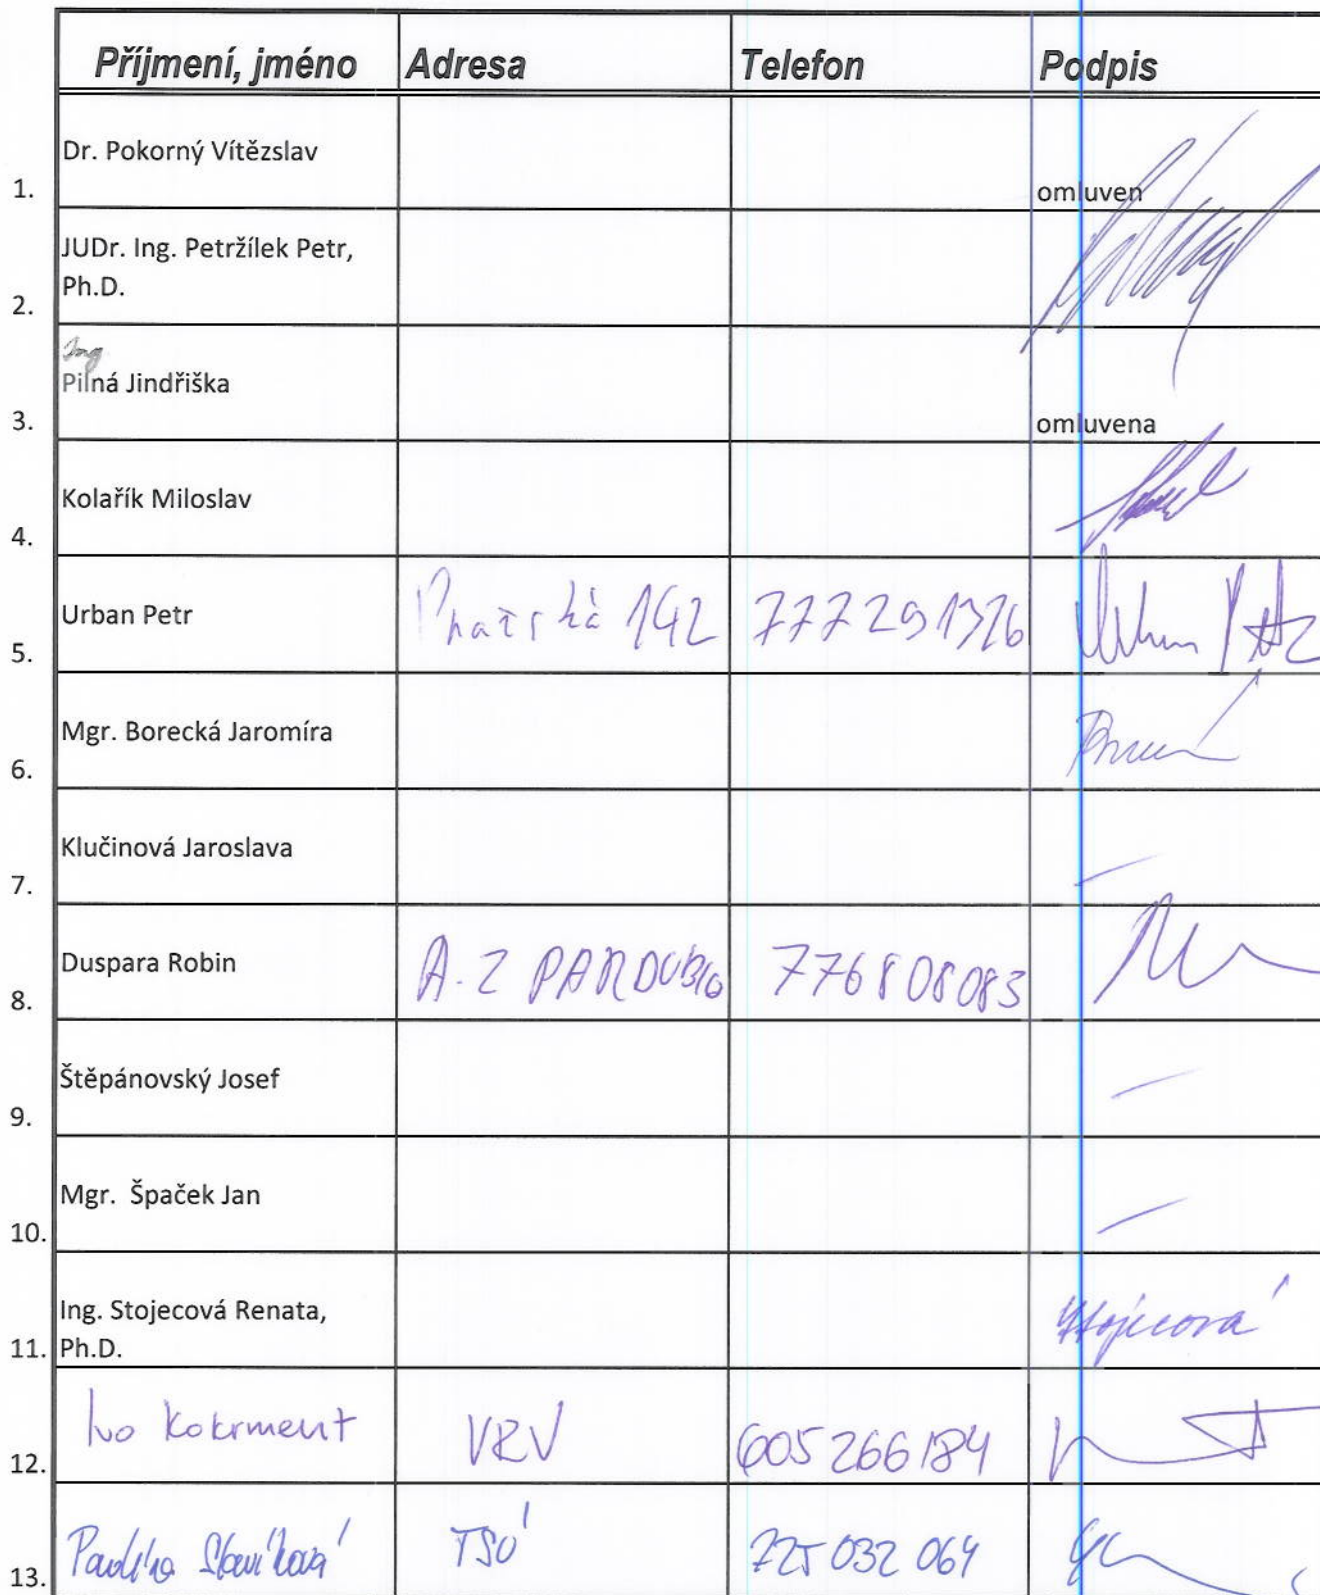 Příjmení, jméno Adresa Telefon Podpis
Dr. Pokorný Vítězslav
1. omluven
JUDr. Ing. Petržílek Petr,
Ph.D.
2.
Ing
Pilná Jindřiška
3. omluvena
Kolařík Miloslav
4.
Urban Petr 142 777291376
5.
Mgr. Borecká Jaromíra
6.
Klučinová Jaroslava
7.
Duspara Robin A-Z 776808083
8.
Štěpánovský Josef
9.
Mgr. Špaček Jan
10.
Ing. Stojecová Renata, Stojecová
11. Ph.D.
Ivo Kokrment VRV 605 266 184
12.
Slavíková TSÚ 725 032 064
13.